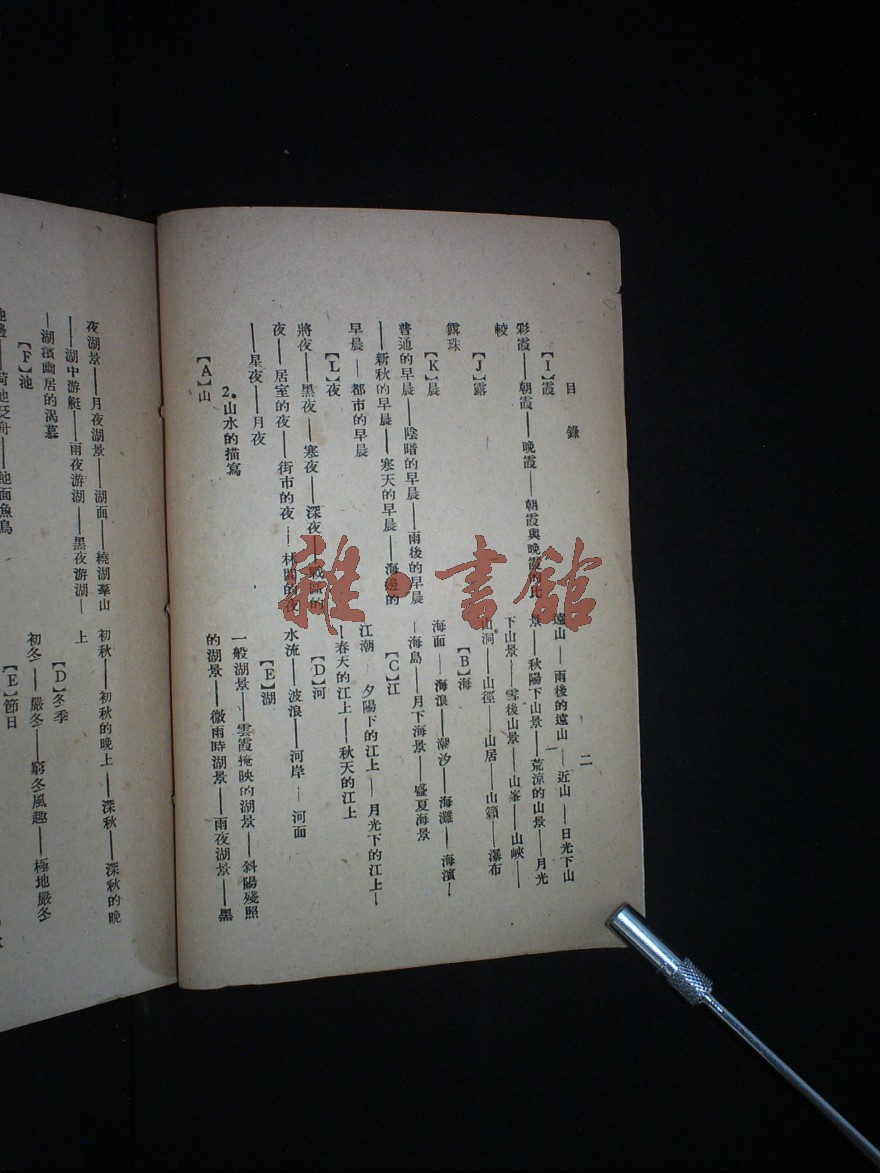 目錄
二
【I】霞
彩霞——朝霞——晚霞——朝霞與晚霞的比
較
【J】露
露珠
【K】晨
普通的早晨——陰暗的早晨——雨後的早晨
——新秋的早晨——寒天的早晨——海邊的
早晨——都市的早晨
【L】夜
將夜——黑夜——寒夜——深夜——戰區的
夜——居室的夜——街市的夜——林間的夜
——星夜——月夜
2.山水的描寫
【A】山
遠山——雨後的遠山——近山——日光下山
景——秋陽下山景——荒涼的山景——月光
下山景——雪後山景——山峯——山峽——
山洞——山徑——山居——山籟——瀑布
【B】海
海面——海浪——潮汐——海灘——海濱—
—海島——月下海景——盛夏海景
【C】江
江潮——夕陽下的江上——月光下的江上—
—春天的江上——秋天的江上
【D】河
水流——波浪——河岸——河面
【E】湖
一般湖景——雲霞掩映的湖景——斜陽殘照
的湖景——微雨時湖景——雨夜湖景——黑
夜湖景——月夜湖景——湖面——繞湖羣山
——湖中游艇——雨夜游湖——黑夜游湖—
—湖濱幽居的渴慕
【F】池
池邊——荷池泛舟——池面魚鳥
初秋——初秋的晚上——深秋——深秋的晚
上
【D】冬季
初冬——嚴冬——窮冬風趣——極地嚴冬
【E】節日
雜·書館